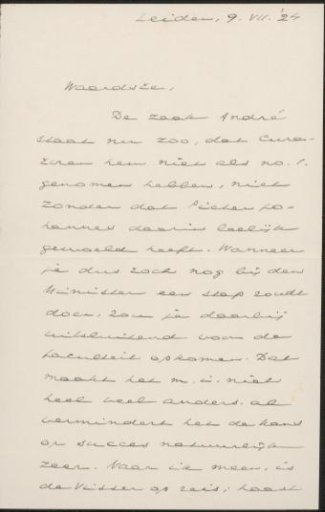 Leiden, 9. VII. '24
Waardste,
De zaak André
staat nu zoo, dat Cura-
toren hem niet als no. 1.
genomen hebben, niet
zonder dat Pieter Jo-
hannes daarin leelijk
gewoeld heeft. Wanneer
je dus toch nog bij den
Minister een stap zoudt
doen, zou je daarbij
uitsluitend voor de
faculteit opkomen. Dat
maakt het m. i. niet
heel veel anders, al
vermindert het de kans
op succes natuurlijk
zeer. Naar ik meen, is
de Visser op reis; haast